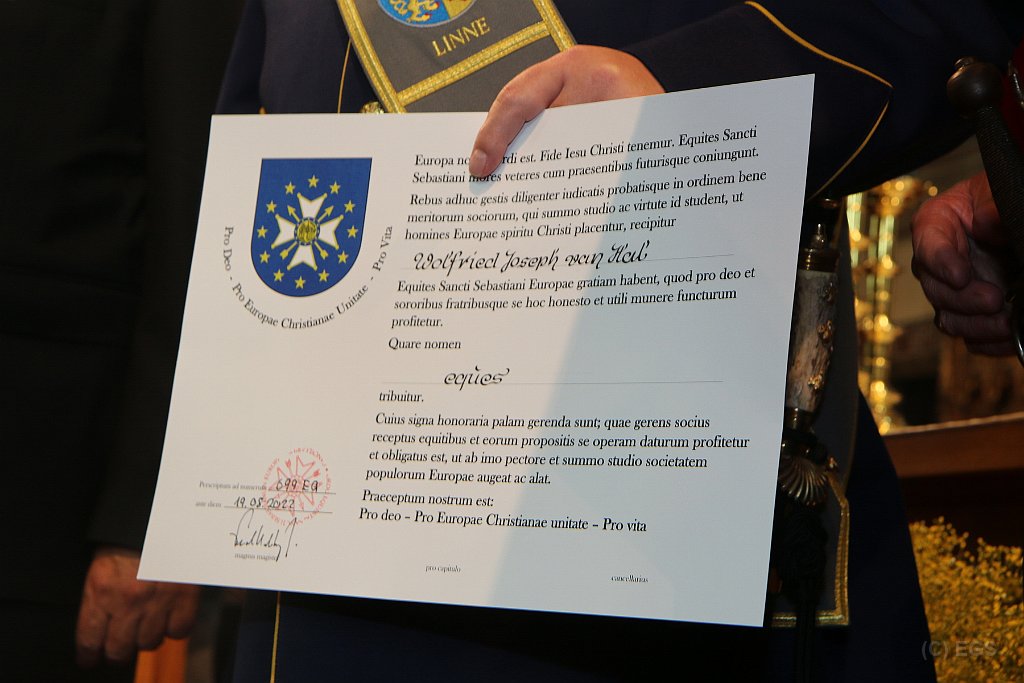 LINNE
Pro Deo - Pro Europae Christianae Unitate - Pro Vita
Europa no rdi est. Fide Iesu Christi tenemur. Equites Sancti
Sebastiani mores veteres cum praesentibus futurisque coniungunt.
Rebus adhuc gestis diligenter iudicatis probatisque in ordinem bene
meritorum sociorum, qui summo studio ac virtute id student, ut
homines Europae spiritu Christi placentur, recipitur
Wolfried Joseph van
Equites Sancti Sebastiani Europae gratiam habent, quod pro deo et
sororibus fratribusque se hoc honesto et utili munere functurum
profitetur.
Quare nomen
eques
tribuitur.
Cuius signa honoraria palam gerenda sunt; quae gerens socius
receptus equitibus et eorum propositis se operam daturum profitetur
et obligatus est, ut ab imo pectore et summo studio societatem
populorum Europae augeat ac alat.
Praeceptum nostrum est:
Pro deo – Pro Europae Christianae unitate – Pro vita
Perscriptum ad numerum 099 EQ
ante diem 19.05.2022
magnus magister
pro capitulo
cancellarius
(C) EGS